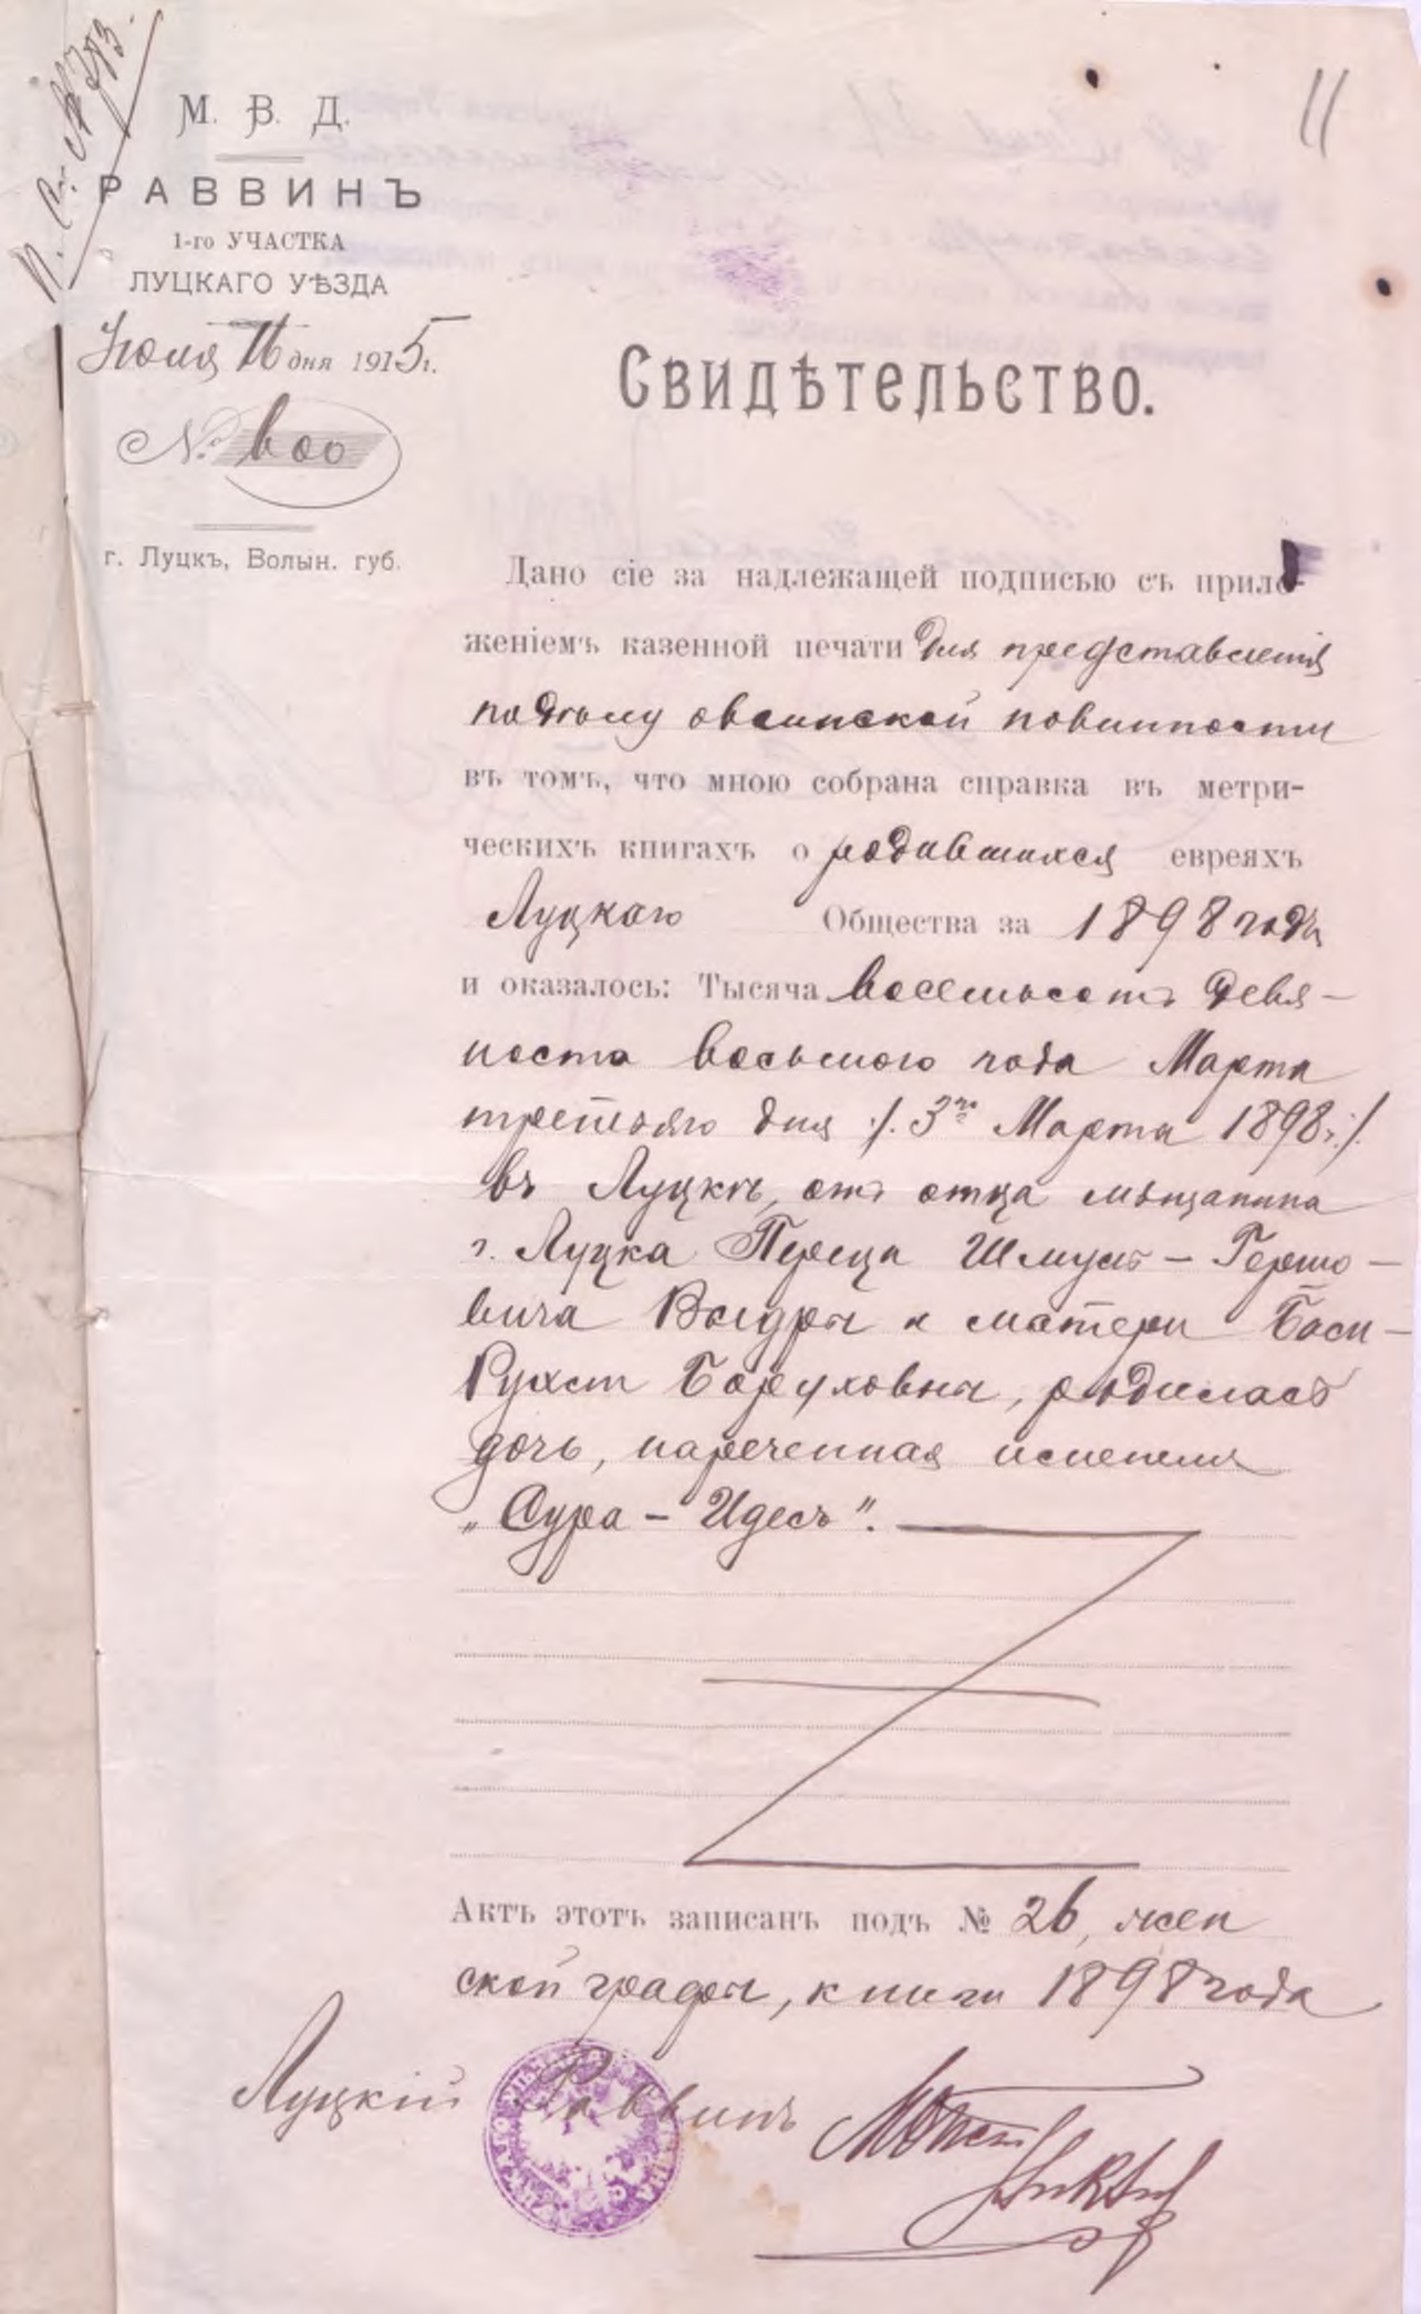 11
М. В. Д.
РАВВИНЪ
1-го УЧАСТКА
ЛУЦКАГО УѢЗДА
Июля 16 дня 1915 г.
№ 600
г. Луцкъ, Волын. губ.
Свидѣтельство.
Дано сіе за надлежащей подписью съ прило-
женіемъ казенной печати для представленія
по воинской повинности
въ томъ, что мною собрана справка въ метри-
ческихъ книгахъ о родившихся евреяхъ
Луцкаго Общества за 1898 годъ
и оказалось: Тысяча восемьсотъ девя-
носто восьмого года Марта
третьяго дня ·/. 3го Марта 1898 г. ·/.
въ Луцкѣ, отъ отца мѣщанина
г. Луцка Переца Шмуль-Гершо-
вича Выдры и матери Баси-
Рухли Боруховны, родилась
дочь, нареченная именемъ
„Сура-Идесъ".
Актъ этотъ записанъ подъ № 26, жен
ской графы, книги 1898 года
Луцкій Раввинъ